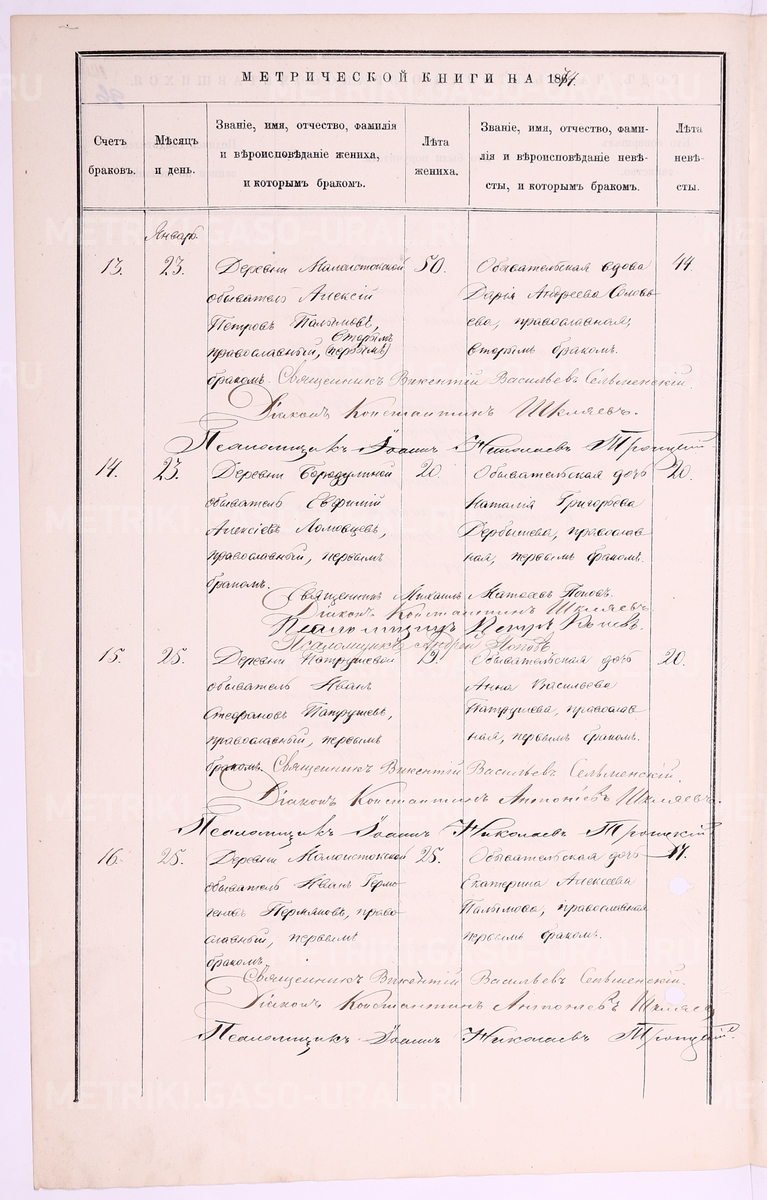 МЕТРИЧЕСКОЙ КНИГИ НА 1874.
Счетъ браковъ.
Мѣсяцъ и день.
Званіе, имя, отчество, фамилія
и вѣроисповѣданіе жениха,
и которымъ бракомъ.
Лѣта жениха.
Званіе, имя, отчество, фами-
лія и вѣроисповѣданіе невѣ-
сты, и которымъ бракомъ.
Лѣта невѣ-
сты.
Январь
13. 23. Деревни Малоистокской 50. Обывательская вдова 44.
обыватель Алексій Дарія Андреева Соловь
Петровъ Пальмовъ, ева, православная,
вторымъ
православный, (первымъ) вторымъ бракомъ.
бракомъ. Священникъ Викентій Васильевъ Сельменскій.
Діаконъ Константинъ Шкляевъ.
Псаломщикъ Іоаннъ Николаевъ Троицкій
14. 23. Деревни Бородулиной 20. Обывательская дочь 20.
обыватель Евфимій Наталія Григорьева
Алексіевъ Ломовцевъ, Дербышева, православ
православный, первымъ ная, первымъ бракомъ.
бракомъ.
Священникъ Михаилъ Матѳеевъ Поповъ.
Діаконъ Константинъ Шкляевъ
Псаломщикъ Петръ
Псаломщикъ Андрей Поповъ
15. 25. Деревни Патрушевой 19. Обывательская дочь 20.
обыватель Иванъ Анна Васильева
Стефановъ Патрушевъ, Патрушева, православ
православный, первымъ ная, первымъ бракомъ.
бракомъ. Священникъ Викентій Васильевъ Сельменскій.
Діаконъ Константинъ Антоніевъ Шкляевъ.
Псаломщикъ Іоаннъ Николаевъ Троицкій
16. 25. Деревни Малоистокской 25. Обывательская дочь 17.
обыватель Иванъ Гермо Екатерина Алексеева
геновъ Пермяковъ, право Пальмова, православная
славный, первымъ первымъ бракомъ.
бракомъ.
Священникъ Викентій Васильевъ Сельменскій.
Діаконъ Константинъ Антоніевъ Шкляевъ
Псаломщикъ Іоаннъ Николаевъ Троицкій.
METRIKI.GASO-URAL.RU